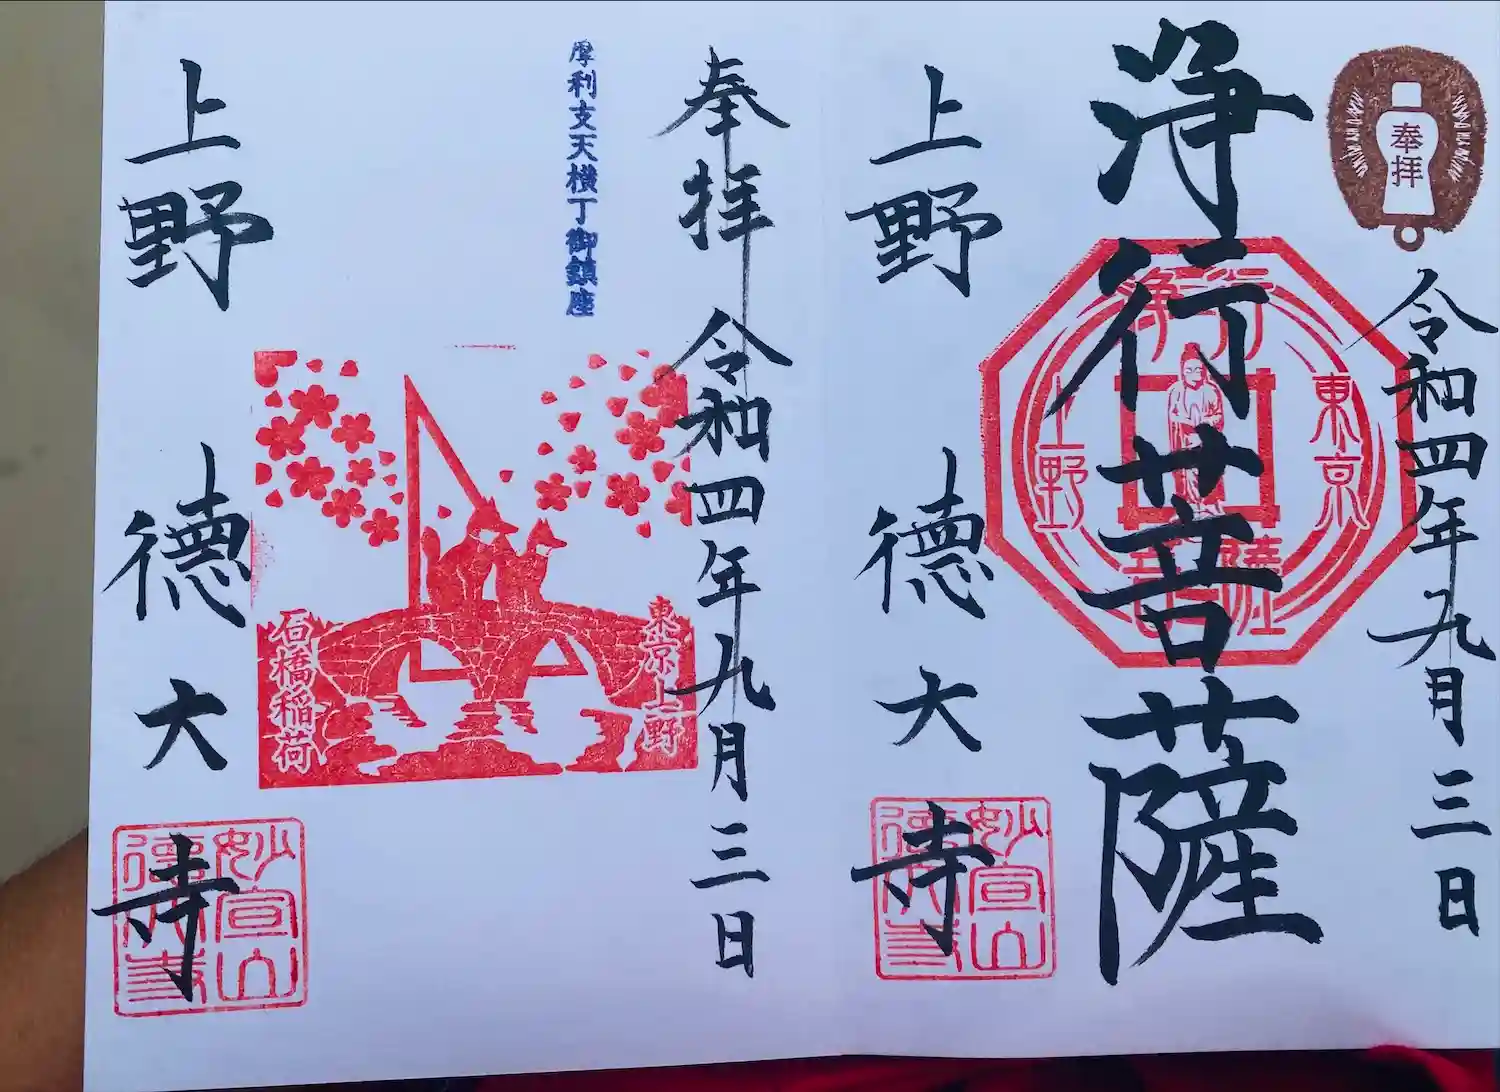 奉拝
令和四年九月三日
東京
浄行菩薩
浄行
菩薩
上野
上野
徳大寺
妙宣山
徳大寺
奉拝
令和四年九月三日
東京上野
摩利支天横丁御鎮座
石橋稲荷
上野
徳大寺
妙宣山
徳大寺